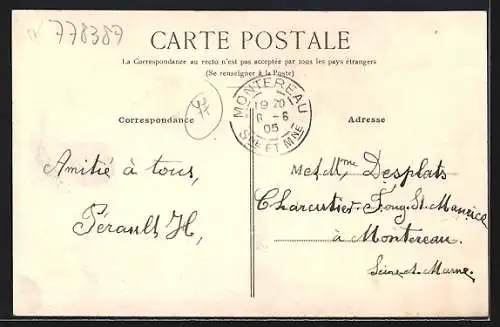 778387
CARTE POSTALE
La Correspondance au recto n'est pas acceptée par tous les pays étrangers
(Se renseigner à la Poste)
MONTEREAU
19 20
6 - 6
05
SNE ET MNE
Correspondance
Adresse
Amitié à tous,
Pérault H,
M et Mme Desplats
Charcutier Foug. St. Maurice
à Montereau
Seine-et-Marne.